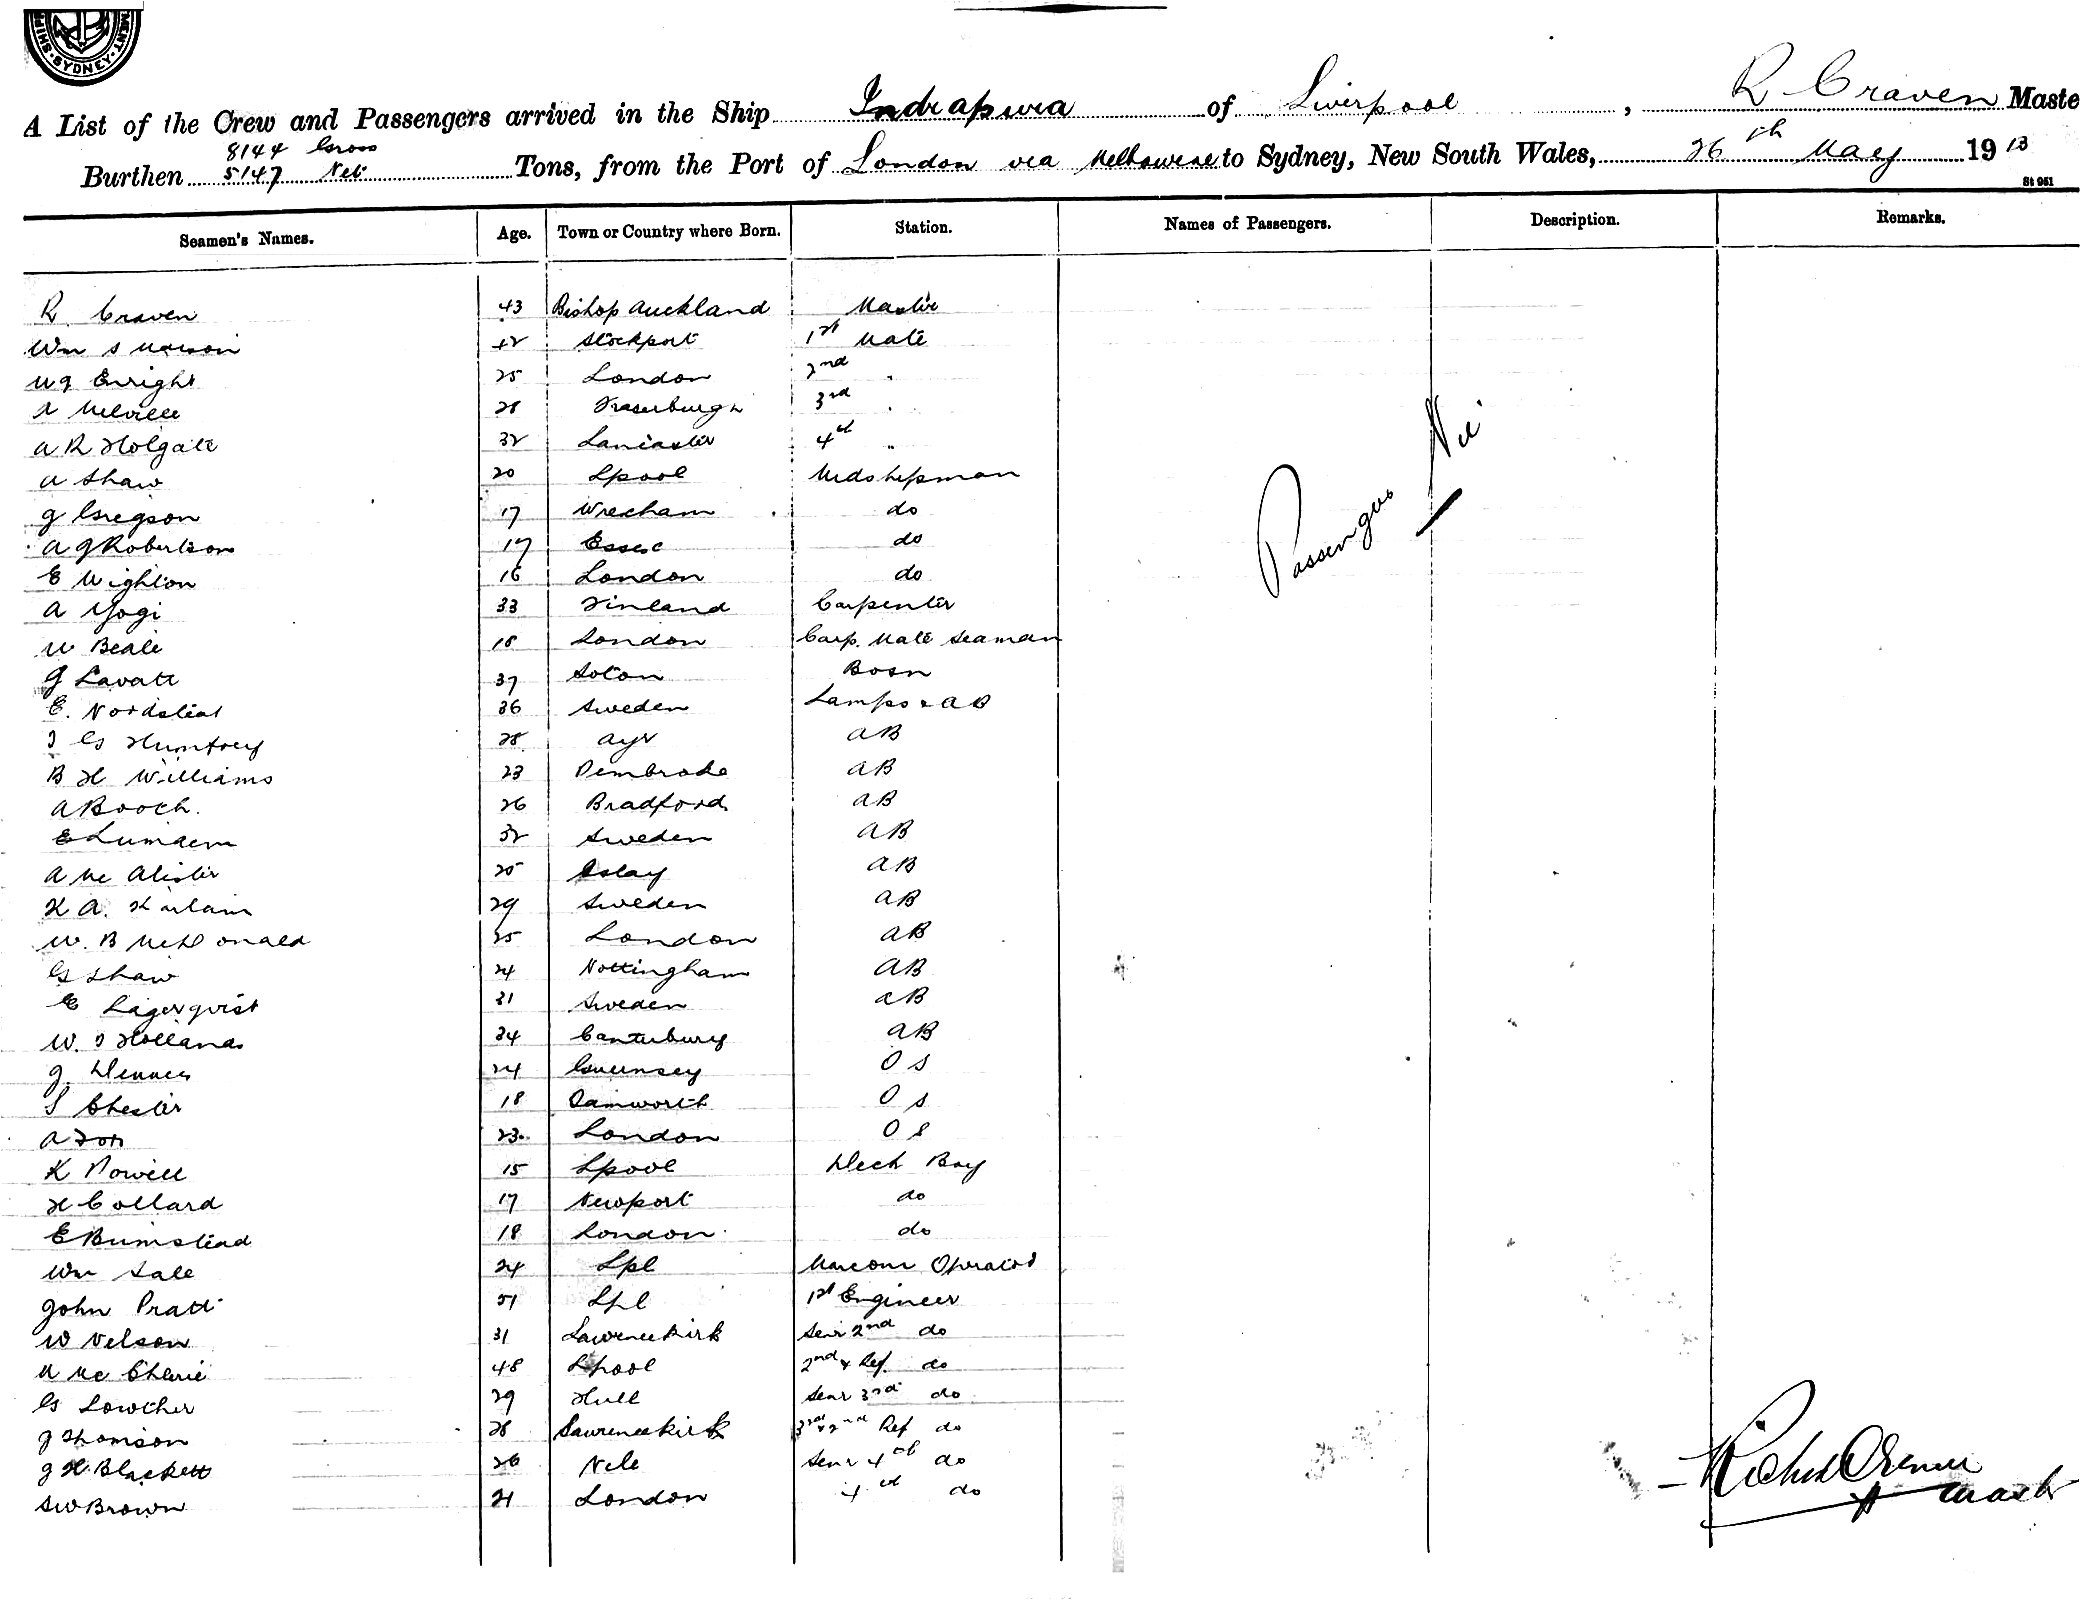 MENT · SYDNEY · SHIP
A List of the Crew and Passengers arrived in the Ship Indrapura of Liverpool, R Craven Maste
8144 Gross
Burthen 5147 Net Tons, from the Port of London via Melbourne to Sydney, New South Wales, 26th May 1913
St 951
Seamen's Names. Age. Town or Country where Born. Station. Names of Passengers. Description. Remarks.
R. Craven 43 Bishop Auckland Master
Wm S 42 Stockport 1st Mate
Enright 25 London 2nd "
Melville 28 Fraserburgh 3rd "
A R Holgate 32 Lancaster 4th "
A Shaw 20 Lpool Midshipman
J Gregson 17 Wrexham do
A J Robertson 17 Essex do
E Wighton 16 London do
A Yogi 33 Finland Carpenter
W Beale 18 London Carp. Mate Seaman
J Lavatt 37 Soton Bosn
E. 36 Sweden Lamps & AB
G Humfrey 28 Ayr AB
B H Williams 23 Pembroke AB
A Booth. 26 Bradford AB
E 32 Sweden AB
A Mc Alister 25 Islay AB
K A. 29 Sweden AB
W. B McDonald 25 London AB
G Shaw 24 Nottingham AB
E Lagerqvist 31 Sweden AB
W. Holland 34 Canterbury AB
J 24 Guernsey O S
S Chester 18 Tamworth O S
A 23 London O S
K Powell 15 Lpool Deck Boy
H Collard 17 Newport do
E Bumstead 18 London do
Wm Sale 24 Lpl Marconi Operator
John Pratt 51 Lpl 1st Engineer
W Nelson 31 Lawrencekirk Senr 2nd do
Mc 48 Lpool 2nd & Ref. do
G Lowther 29 Hull Senr 3rd do
J Thomson 28 Lawrencekirk 3rd & 2nd Ref do
J H Blackett 26 Senr 4th do
S W Brown 21 London 4th do
Passengers Nil
Richd Craven
Master